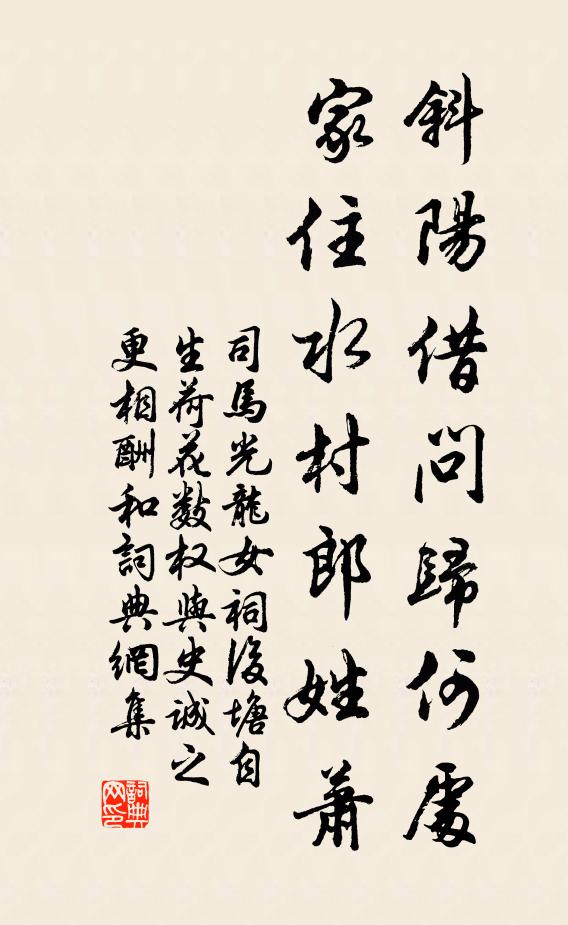 斜陽借問歸何處
家住水村郎姓蕭
司馬光龍女祠後塘自
生荷花數枝與史誠之
更相酬和詞典網集
詞典网印